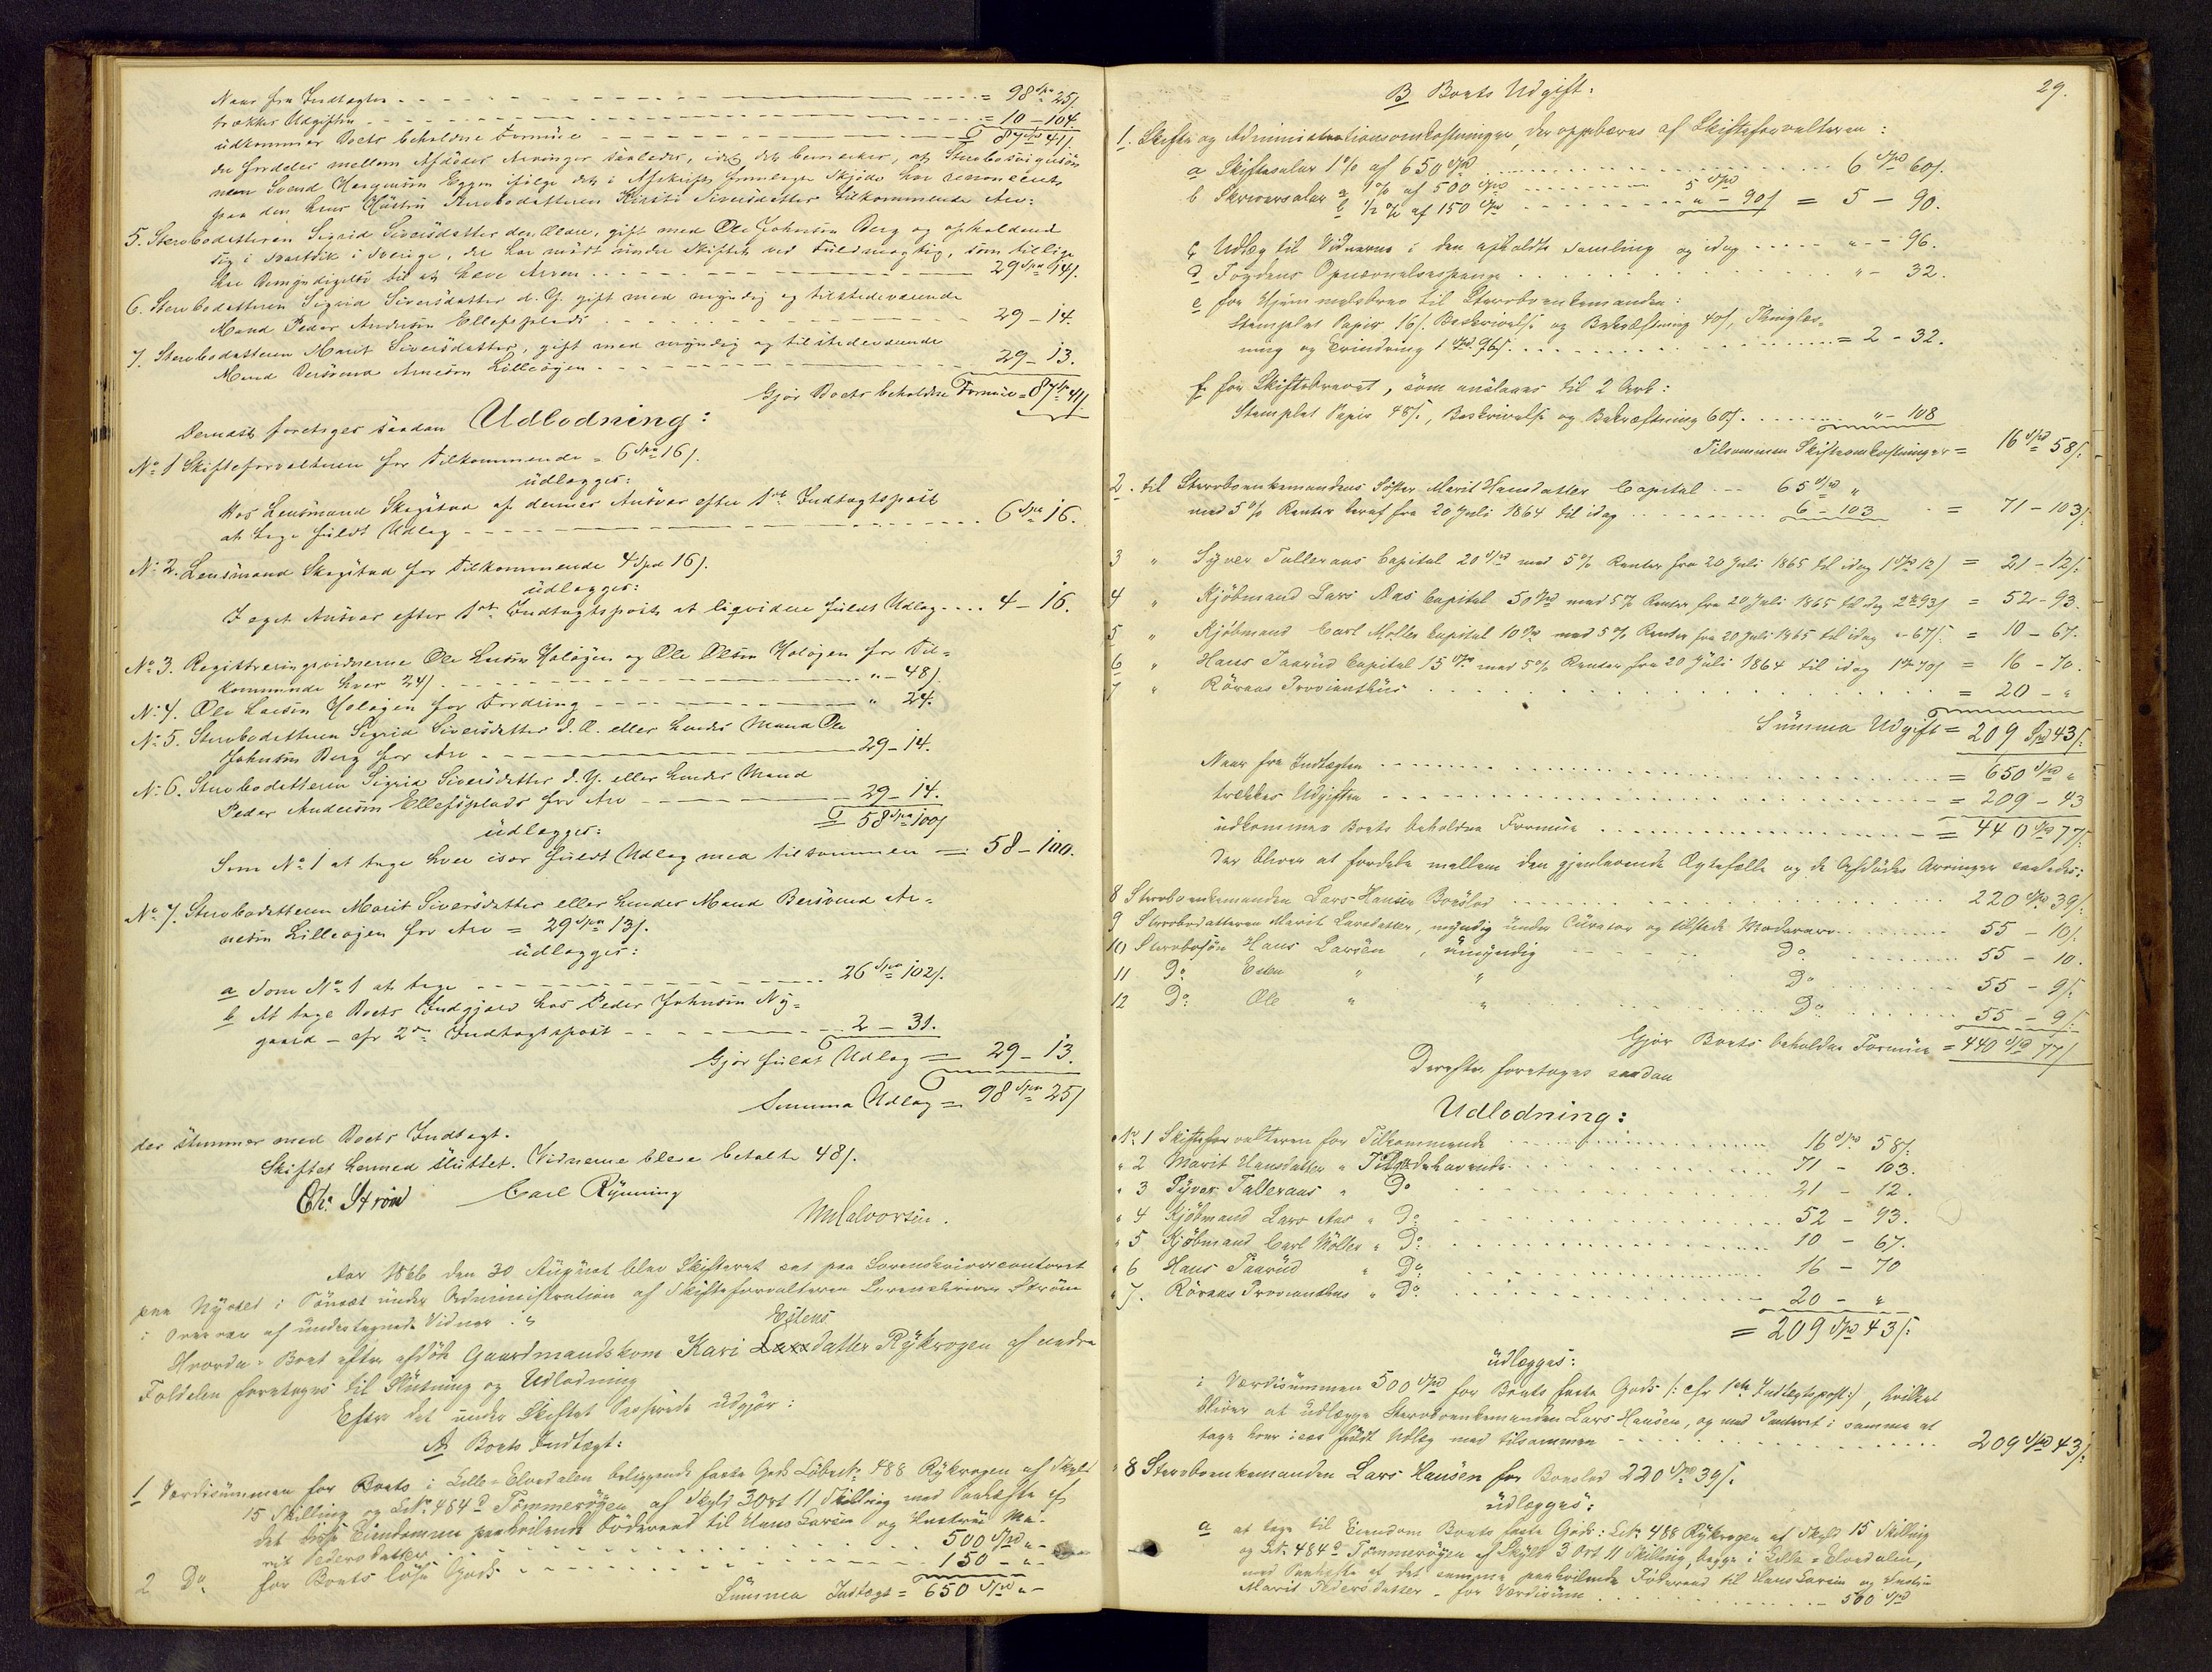 Naar fra Indtægten = 98 Spd 25 s.
trækkes Udgiften = 10 - 104.
udkommer Boets beholdne Formue = 87 Spd 41 s.
der fordeles mellem Afdødes Arvinger saaledes, idet det bemærkes, at
Svend Eggen ifølge det i Afskrift fremlagte Skjøde har renonceret
paa den hans Hustru Sterbodatteren Kirsti Siversdatter tilkommende Arv:
5. Sterbodatteren Sigrid Siversdatter den Ældre, gift med Ole Johnsen Berg og opholdende
sig i i Sverige, der har mødt under Skiftet ved Fuldmægtig, som tillige
har Bemyndigelse til at hæve Arven 29 Spd 14 s.
6. Sterbodatteren Sigrid Siversdatter d. Y. gift med myndig og tilstedeværende
Mand Peder Andersen Ellefsplads 29 - 14.
7. Sterbodatteren Marit Siversdatter, gift med myndig og tilstedeværende
Mand Bersvend Arnesen Lilleøyen 29 - 13.
Gjør Boets beholdne Formue = 87 Spd 41 s.
Dernæst foretages saadan Udlodning:
No 1 Skifteforvalteren for Tilkommende = 6 Spd 16 s.
udlægges:
Hos Lensmand Skogstad af dennes Ansvar efter 1ste Indtægtspost
at tage fuldt Udlæg 6 Spd 16.
No 2. Lensmand Skogstad for Tilkommende 4 Spd 16 s.
udlægges:
I eget Ansvar efter 1ste Indtægtspost at liqvidere fuldt Udlæg 4 - 16.
No 3. Registreringsvidnerne Ole Larsen Holøyen og Ole Olsen Holøyen for Til=
kommende hver 24 s. " - 48 s.
No 4. Ole Larsen Holøyen for Fordring " 24.
No 5. Sterbodatteren Sigrid Siversdatter d. Æ. eller hendes Mand Ole
Johnsen Berg for Arv 29 - 14.
No 6. Sterbodatteren Sigrid Siversdatter d. Y. eller hendes Mand
Peder Andersen Ellefsplads for Arv 29 - 14.
= 58 Spd 100 s
udlægges:
Som No 1 at tage hver især fuldt Udlæg med tilsammen = 58 - 100.
No 7. Sterbodatteren Marit Siversdatter eller hendes Mand Bersvend Ar=
nesen Lilleøyen for Arv = 29 Spd 13 s.
udlægges:
a Som No 1 at tage 26 Spd 102 s.
b At tage Boets Indgjæld hos Peder Johnsen Ny=
gaard - cfr 2den Indtægtspost 2 - 31.
Gjør fuldt Udlæg = 29 - 13.
Summa Udlæg = 98 Spd 25 s
der stemmer med Boets Indtægt.
Skiftet hermed sluttet. Vidnerne bleve betalte 48 s.
Chr. Strøm Carl Rynning
M Halvorsen.
Aar 1866 den 30 August blev Skifteret sat paa Sorenskrivercontoret
paa Nyested i Tønset under Administration af Skifteforvalteren Sorenskriver Strøm
i Overvær af undertegnede Vidner. "
Estens
Hvorda: Boet efter afdøde Gaardmandskone Kari Larsdatter Rykrogen af nedre
Foldalen foretoges til Slutning og Udlodning
Efter det under Skiftet Passerede udgjør:
A Boets Indtægt:
1 Værdisummen for Boets i Lille-Elvedalen beliggende faste Gods Løbe No 488 Rykrogen af Skyld
15 Skilling og L. No 484 d Tømmerøyen af Skyld 3 Ort 11 Skilling med Paahefte af
det disse Eiendomme paahvilende Føderaad til Hans Larsen og Hustru Ma-
rit Pedersdatter 500 Spd " -
2 Do for Boets løse Gods 150 - " -
Summa Indtægt = 650 Spd " -
29.
B Boets Udgift:
1. Skifte og Administrationsomkostninger, der oppebæres af Skifteforvalteren:
a Skiftesalær 1 % af 650 Spd 6 Spd 60 s.
b Skriversalær a 1 % af 500 Spd 5 Spd
b 1/2 % af 150 Spd " - 90 s = 5 - 90.
c Udlæg til Vidnerne i den afholdte Samling og idag " - 96.
d Fogdens Opnævnelsespenge " - 32.
e for Hjemmelsbrev til Sterboenkemanden:
Stemplet Papir 16 s. Beskrivelse og Bekræftning 40 s, Thinglæs-
ning og Erindring 1 Spd 96 s. = 2 - 32.
f for Skiftebrevet, som anslaaes til 2 Ark:
Stemplet Papir 48 s., Beskrivelse og Bekræftning 60 s. " - 108
Tilsammen Skifteomkostninger = 16 Spd 58 s.
2. til Sterboenkemandens Søster Marit Hansdatter Capital 65 Spd "
med 5 % Renter beraf fra 20 Juli 1864 til idag 6 - 103 = 71 - 103 s.
3 " Syver Talleraas Capital 20 Spd med 5 % Renter fra 20 Juli 1865 til idag 1 Spd 12 s = 21 - 12 s.
4 " Kjøbmand Lars Aas Capital 50 Spd med 5 % Renter fra 20 Juli 1865 til idag 2 Spd 93 s = 52 - 93.
5 " Kjøbmand Carl Møller Capital 10 Spd med 5 % Renter fra 20 Juli 1865 til idag " 67 s. = 10 - 67.
6 " Hans Taarud Capital 15 Spd med 5 % Renter fra 20 Juli 1864 til idag 1 Spd 70 s = 16 - 70.
7 " Røraas Provianthus = 20 - "
Summa Udgift = 209 Spd 43 s.
Naar fra Indtægten = 650 Spd "
trækkes Udgiften = 209 - 43
udkommer Boets beholdne Formue = 440 Spd 77 s.
der bliver at fordele mellem den gjenlevende Ægtefælle og de Afdødes Arvinger saaledes:
8 Sterboenkemanden Lars Hansen Boeslod 220 Spd 39 s.
9 Sterbodatteren Marit Larsdatter, myndig under Curator og tilstede Moderarv 55 - 10 s.
10 Sterbosøn Hans Larsen, umyndig Do 55 - 10.
11 Do Esten " " Do 55 - 9 s.
12 Do Ole " " Do 55 - 9 s.
Gjør Boets beholdne Formue = 440 Spd 77 s
Derefter foretoges saadan
Udlodning:
No 1 Skifteforvalteren for Tilkommende 16 Spd 58 s.
" 2 Marit Hansdatter " Tilgodehavende 71 - 103.
" 3 Syver Talleraas " Do 21 - 12.
" 4 Kjøbmand Lars Aas " Do 52 - 93.
" 5 Kjøbmand Carl Møller " Do 10 - 67.
" 6 Hans Taarud " Do 16 - 70
" 7. Røraas Provianthus " Do 20 - "
= 209 Spd 43 s.
udlægges:
i Værdisummen 500 Spd for Boets faste Gods /: cfr 1ste Indtægtspost :/, hvilket
bliver at udlægge Sterboenkemanden Lars Hansen, og med Panteret i samme at
tage hver især fuldt Udlæg med tilsammen 209 Spd 43 s.
" 8 Sterboenkemanden Lars Hansen for Boeslod 220 Spd 39 s.
udlægges:
a at tage til Eiendom Boets faste Gods: L. No 488 Rykrogen af Skyld 15 Skilling
og L. No 484 d Tømmerøyen af Skyld 3 Ort 11 Skilling, begge i Lille-Elvedalen,
med Paahefte af det samme paahvilende Føderaad til Hans Larsen og Hustru
Marit Pedersdatter - for Værdisum 500 Spd